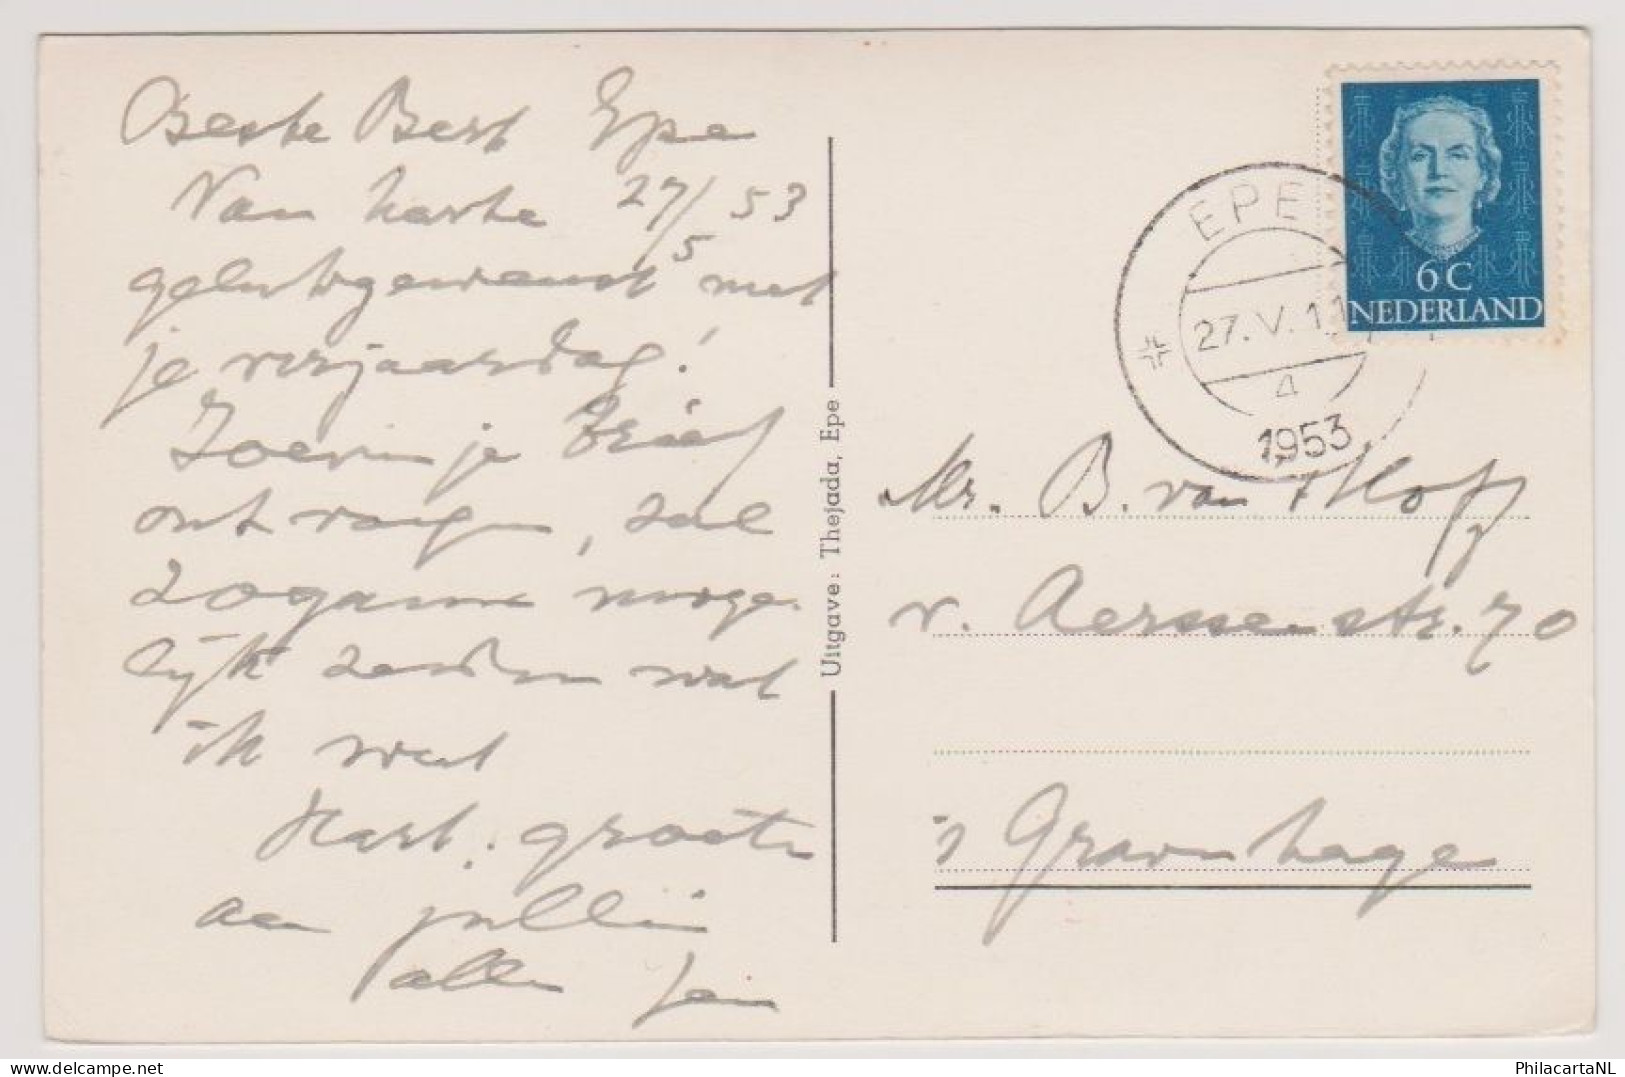 Beste Bert Epe
Van harte 27/5 53
gelukgewenst met
je verjaardag!
Zoeven je brief
ontvangen, zal
zogauw moge-
lijk zenden wat
ik weet
Hart. groeten
aan jullie
allen Jan
Uitgave: Thejada, Epe
NEDERLAND
6 C
EPE
27.V.11
4
1953
Mr. B. van 't Hoff
v. Aerssenstr. 70
's Gravenhage
PhilacartaNL
www.delcampe.net